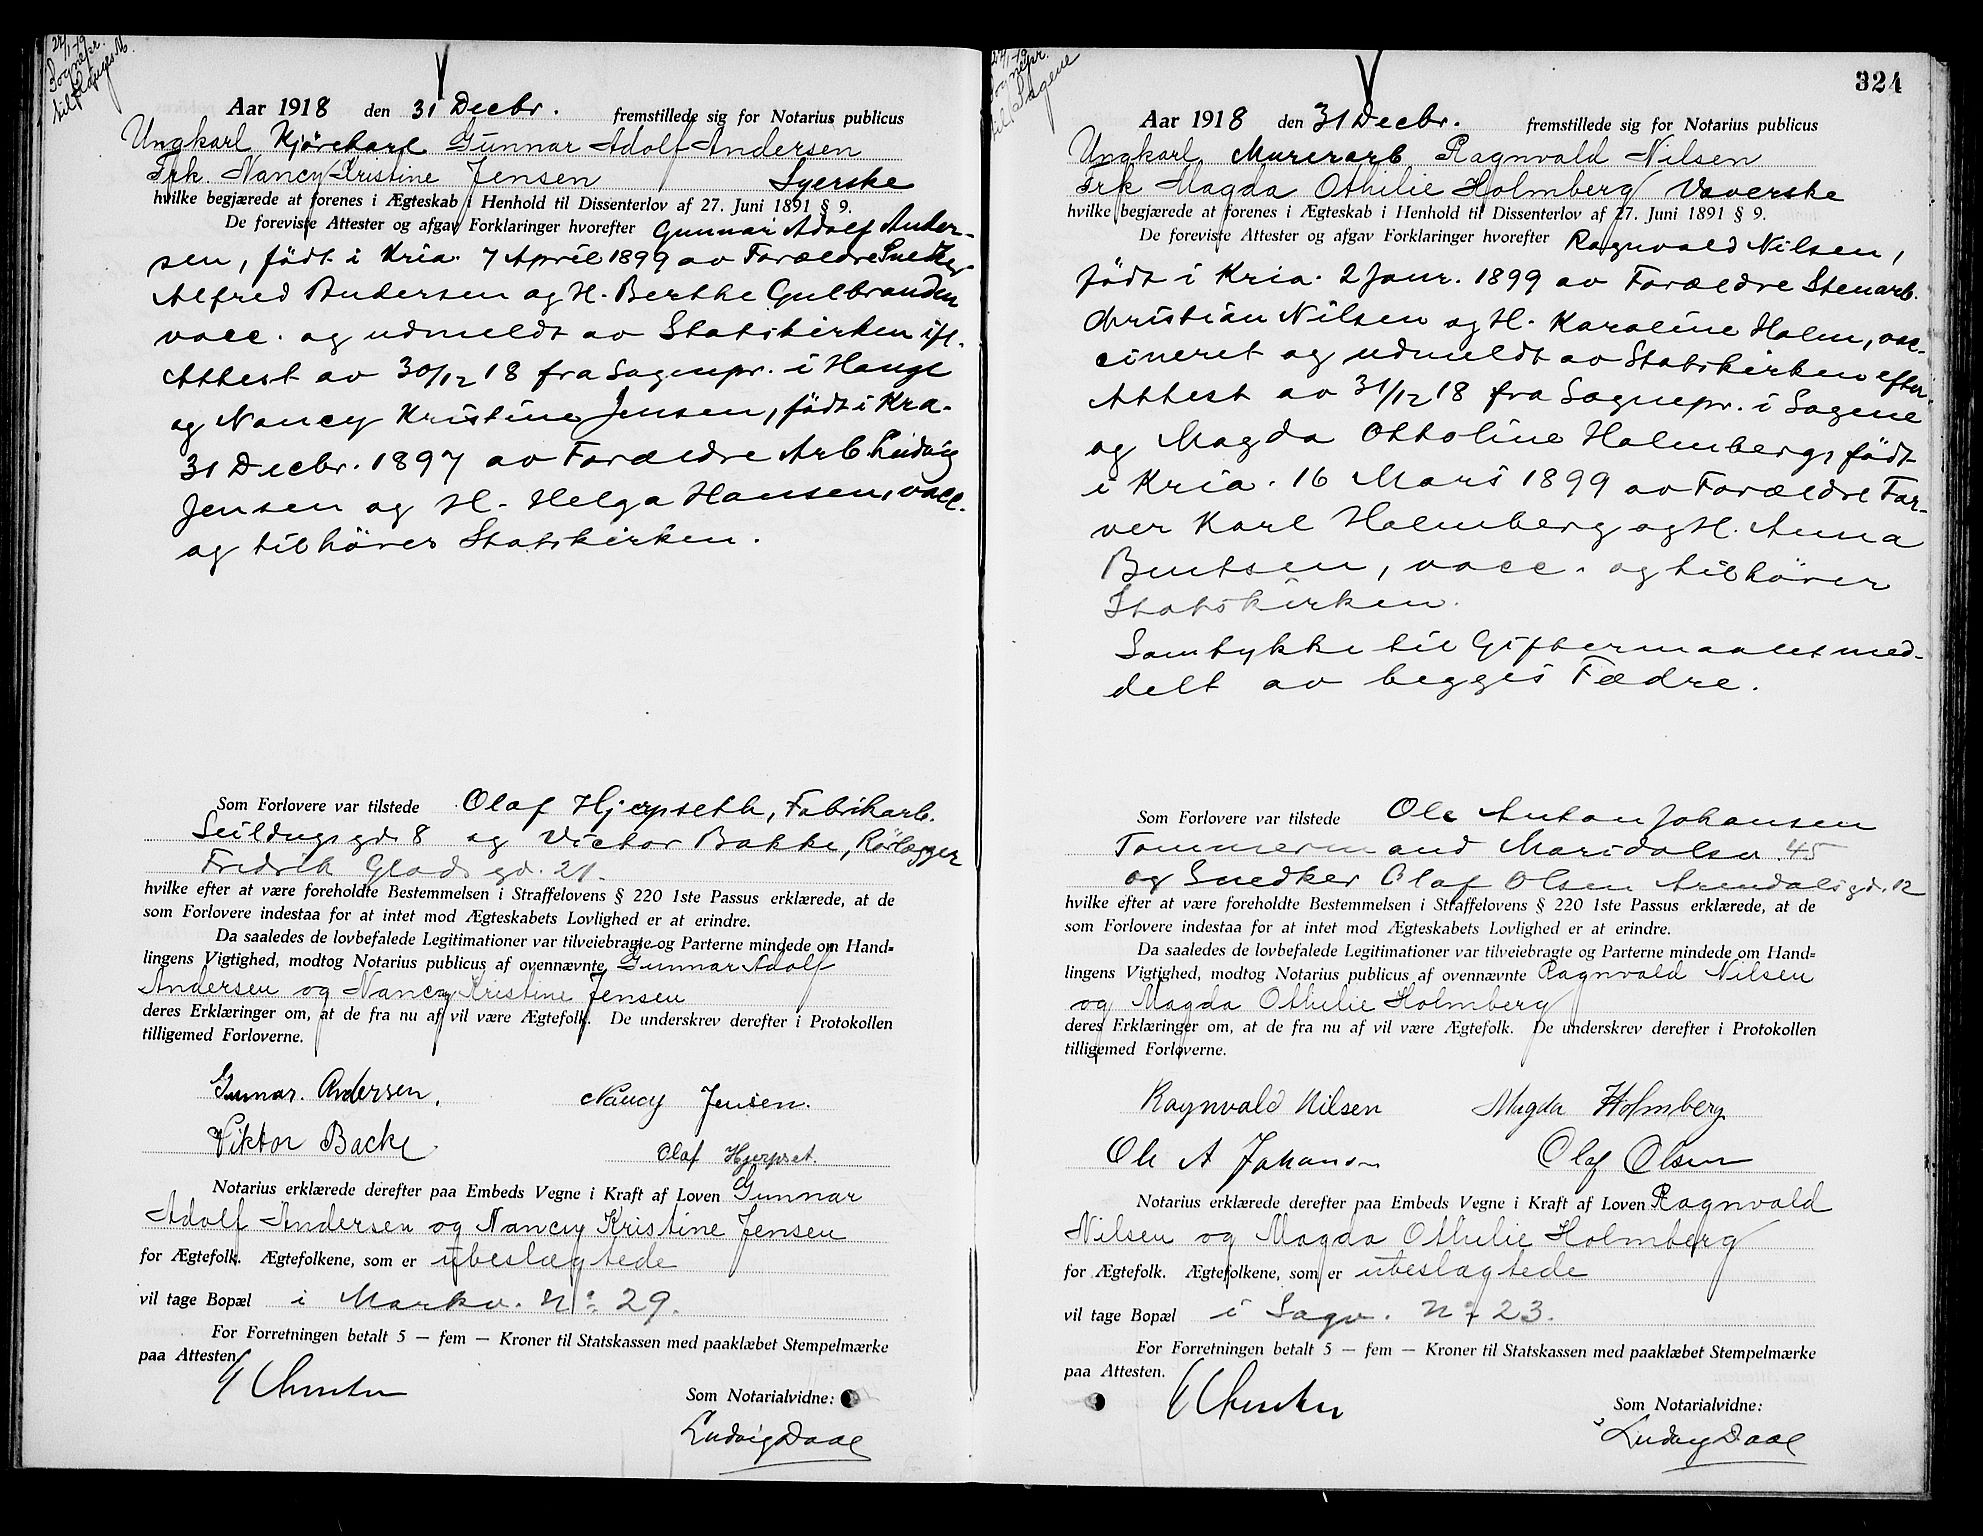 27/1-19
Sognepr.
til Hauges M.
Aar 1918 den 31 Decbr. fremstillede sig for Notarius publicus
Ungkarl Kjørekarl Gunnar Adolf Andersen
Frk. Nancy Kristine Jensen Syerske
hvilke begjærede at forenes i Ægteskab i Henhold til Dissenterlov af 27. Juni 1891 § 9.
De foreviste Attester og afgav Forklaringer hvorefter Gunnar Adolf Ander-
sen, født i Kria. 7 April 1899 av Forældre Snedker
Alfred Andersen og H. Berthe Gulbrandsen
vacc. og udmeldt av Statskirken ifl.
Attest av 30/12 18 fra Sognepr. i Hauge
og Nancy Kristine Jensen, født i Kra.
31 Decbr. 1897 av Forældre Arb. Ludvig
Jensen og H. Helga Hansen, vacc.
og tilhører Statskirken.
Som Forlovere var tilstede Olaf Hjerpseth, Fabrikarb.
Seildugsgd. 8 og Victor Bakke, Rørlegger
Fredrik Glads gd. 21.
hvilke efter at være foreholdte Bestemmelsen i Straffelovens § 220 1ste Passus erklærede, at de
som Forlovere indestaa for at intet mod Ægteskabets Lovlighed er at erindre.
Da saaledes de lovbefalede Legitimationer var tilveiebragte og Parterne mindede om Hand-
lingens Vigtighed, modtog Notarius publicus af ovennævnte Gunnar Adolf
Andersen og Nancy Kristine Jensen
deres Erklæringer om, at de fra nu af vil være Ægtefolk. De underskrev derefter i Protokollen
tilligemed Forloverne.
Gunnar. Andersen. Nancy Jensen.
Viktor Backe Olaf Hjerpset.
Notarius erklærede derefter paa Embeds Vegne i Kraft af Loven Gunnar
Adolf Andersen og Nancy Kristine Jensen
for Ægtefolk. Ægtefolkene, som er ubeslægtede
vil tage Bopæl i Markv. No. 29.
For Forretningen betalt 5 — fem — Kroner til Statskassen med paaklæbet Stempelmærke
paa Attesten.
Som Notarialvidne:
Ludvig Daae
27/1-19
Sognepr.
til Sagene
324
Aar 1918 den 31 Decbr. fremstillede sig for Notarius publicus
Ungkarl Murerarb Ragnvald Nilsen
Frk Magda Othilie Holmberg Væverske
hvilke begjærede at forenes i Ægteskab i Henhold til Dissenterlov af 27. Juni 1891 § 9.
De foreviste Attester og afgav Forklaringer hvorefter Ragnvald Nilsen,
født i Kria. 2 Janr. 1899 av Forældre Stenarb.
Christian Nilsen og H. Karoline Holm, vac-
cineret og udmeldt av Statskirken efter
Attest av 31/12 18 fra Sognepr. i Sagene
og Magda Ottoline Holmberg, født
i Kria. 16 Mars 1899 av Forældre Far-
ver Karl Holmberg og H. Anna
Bentsen, vacc. og tilhører
Statskirken.
Samtykke til Giftermaalet med-
delt av begges Fædre.
Som Forlovere var tilstede Ole Anton Johansen
Tømmermand Maridalsv. 45
og Snedker Olaf Olsen Arendalsgd. 12
hvilke efter at være foreholdte Bestemmelsen i Straffelovens § 220 1ste Passus erklærede, at de
som Forlovere indestaa for at intet mod Ægteskabets Lovlighed er at erindre.
Da saaledes de lovbefalede Legitimationer var tilveiebragte og Parterne mindede om Hand-
lingens Vigtighed, modtog Notarius publicus af ovennævnte Ragnvald Nilsen
og Magda Othilie Holmberg
deres Erklæringer om, at de fra nu af vil være Ægtefolk. De underskrev derefter i Protokollen
tilligemed Forloverne.
Ragnvald Nilsen Magda Holmberg
Ole A Johansen Olaf Olsen
Notarius erklærede derefter paa Embeds Vegne i Kraft af Loven Ragnvald
Nilsen og Magda Othilie Holmberg
for Ægtefolk. Ægtefolkene, som er ubeslægtede
vil tage Bopæl i Sagv. No. 23.
For Forretningen betalt 5 — fem — Kroner til Statskassen med paaklæbet Stempelmærke
paa Attesten.
Som Notarialvidne:
Ludvig Daae